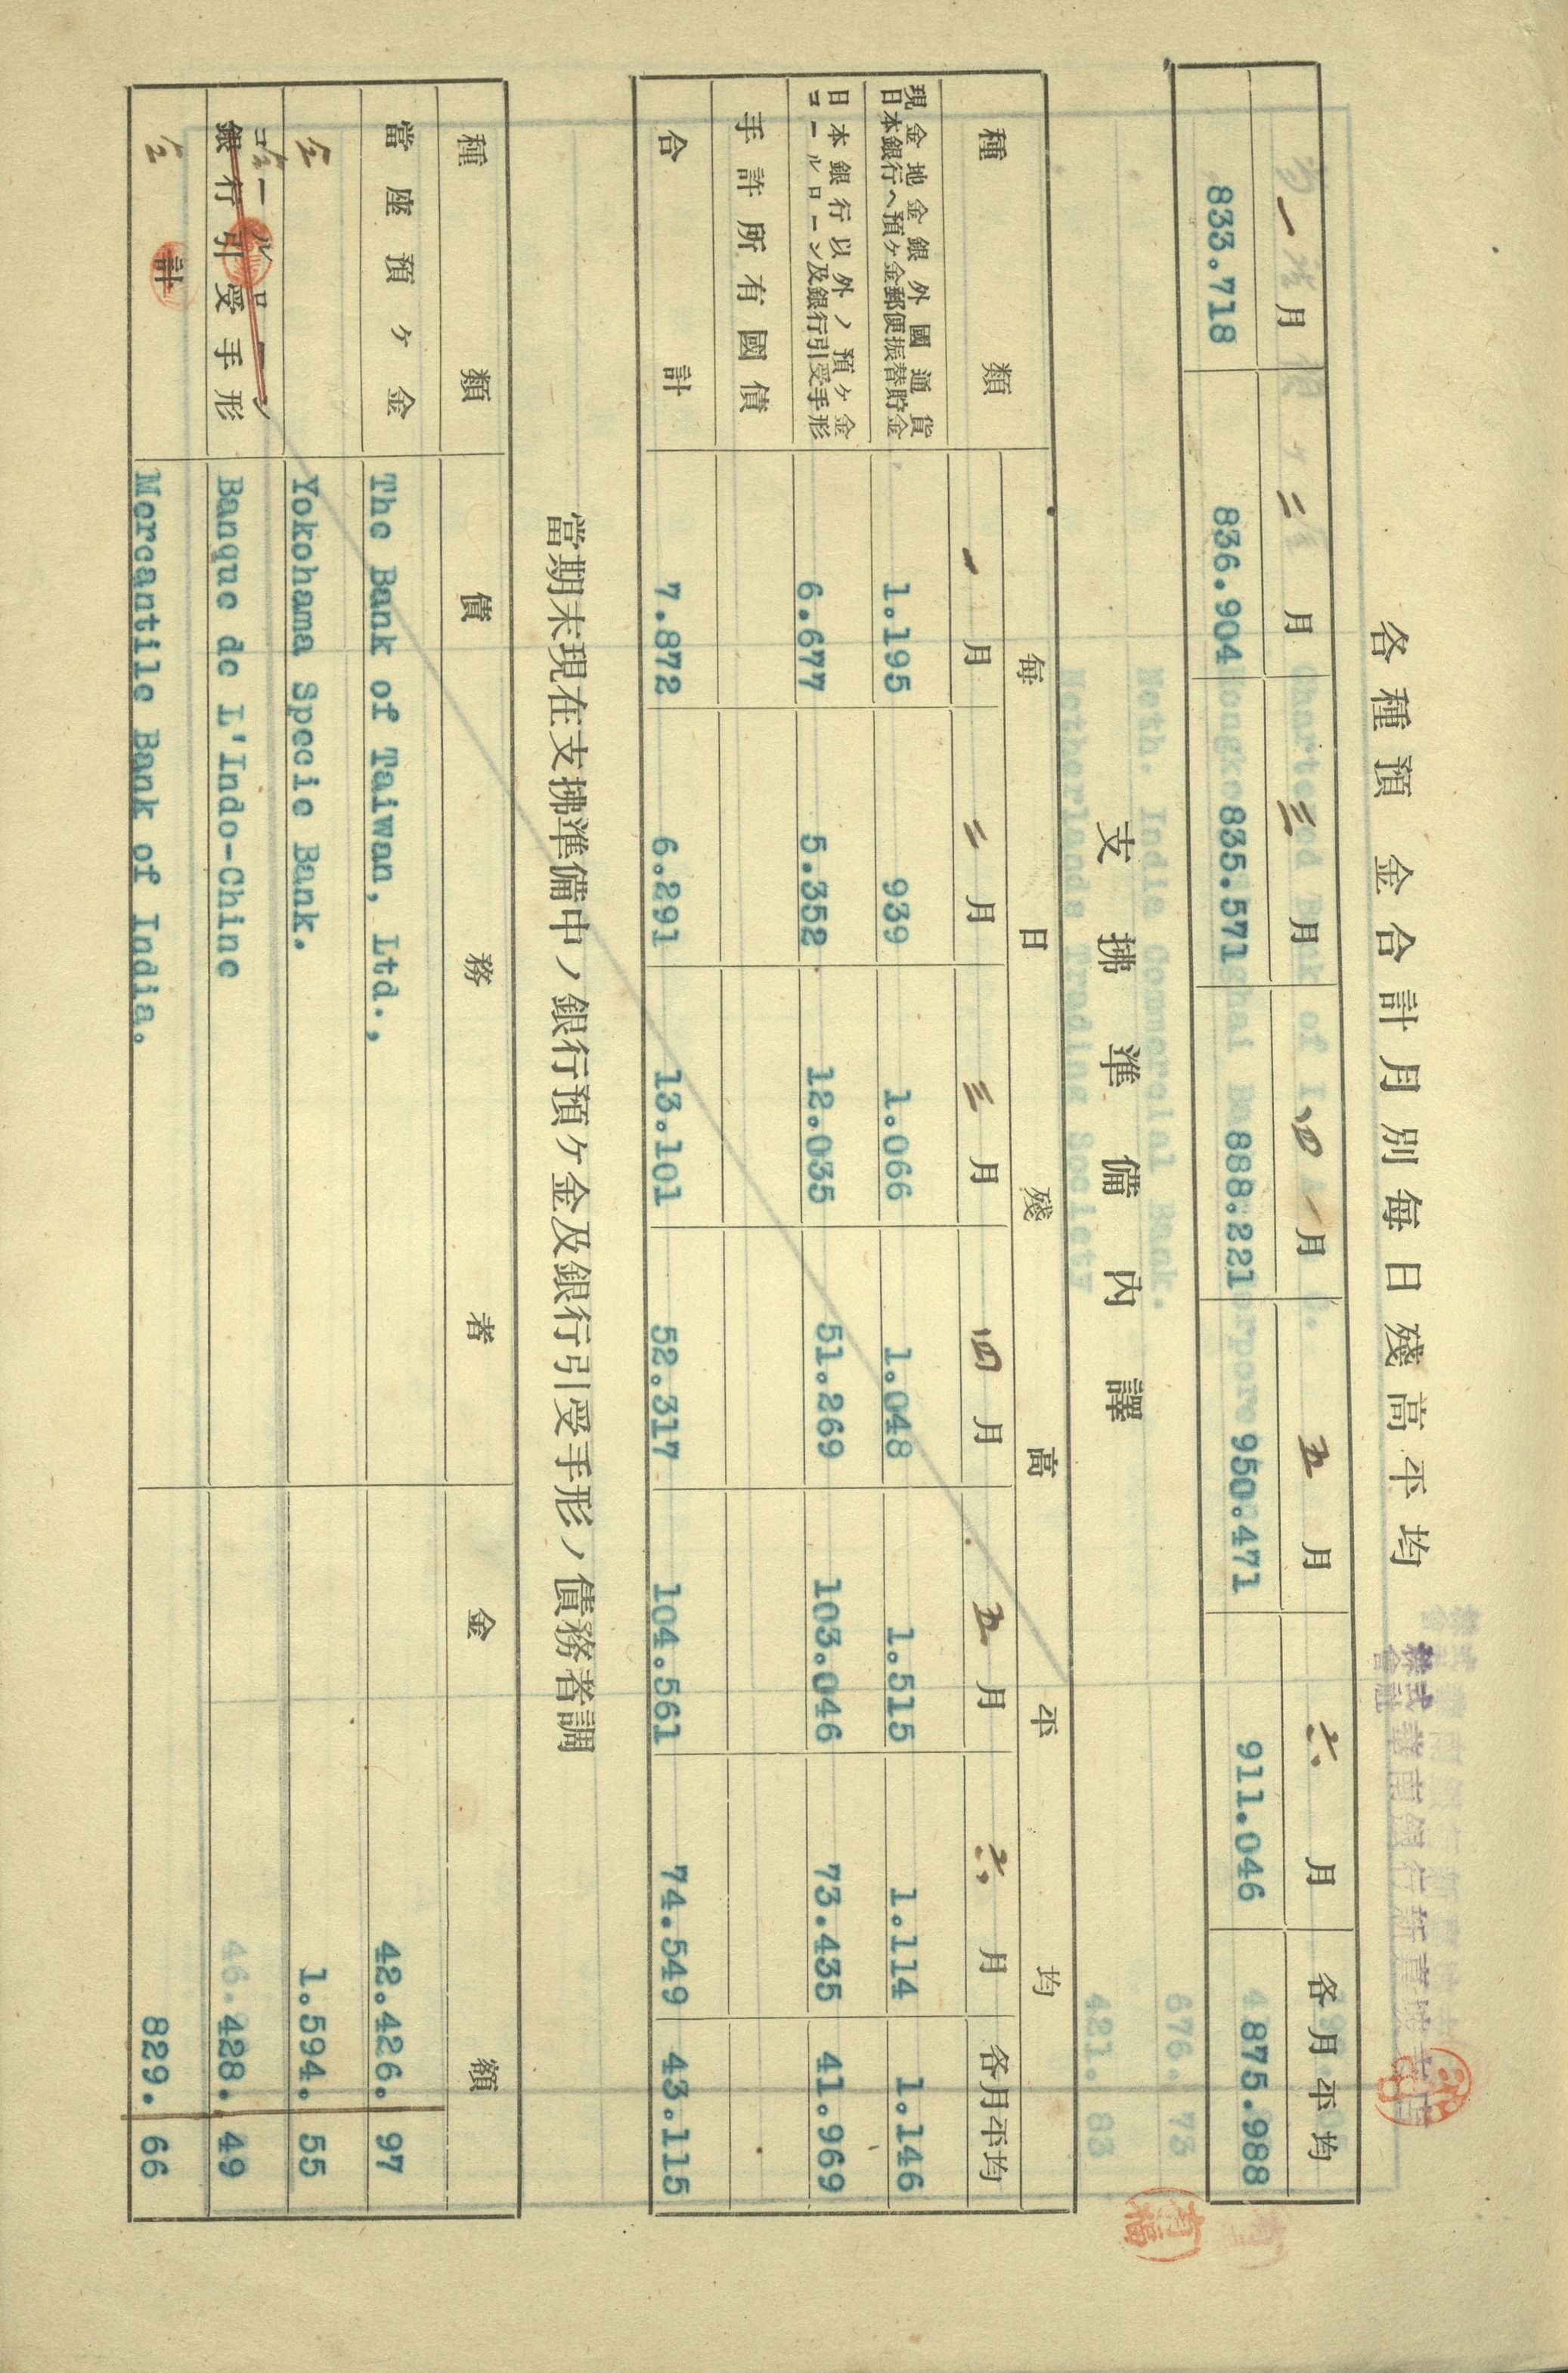 各種預金合計月別每日殘高平均
株式會社華南銀行新嘉坡支店
一月 二月 三月 四月 五月 六月 各月平均
833.718 836.904 835.571 888.221 950.471 911.046 875.988
支拂準備內譯
種類 每日殘高平均
一月 二月 三月 四月 五月 六月 各月平均
現金地金銀外國通貨
日本銀行ヘ預ケ金郵便振替貯金
1.195 939 1.066 1.048 1.515 1.114 1.146
日本銀行以外ノ預ケ金
コールローン及銀行引受手形
6.677 5.352 12.035 51.269 103.046 73.435 41.969
手許所有國債
合計 7.872 6.291 13.101 52.317 104.561 74.549 43.115
當期末現在支拂準備中ノ銀行預ケ金及銀行引受手形ノ債務者調
種類 債務者 金額
當座預ケ金 The Bank of Taiwan, Ltd., 42.426. 97
仝 Yokohama Specie Bank. 1.594. 55
コールローン
仝
銀行引受手形 Banque de L'Indo-Chine 428. 49
仝 計 Mercantile Bank of India. 829. 66